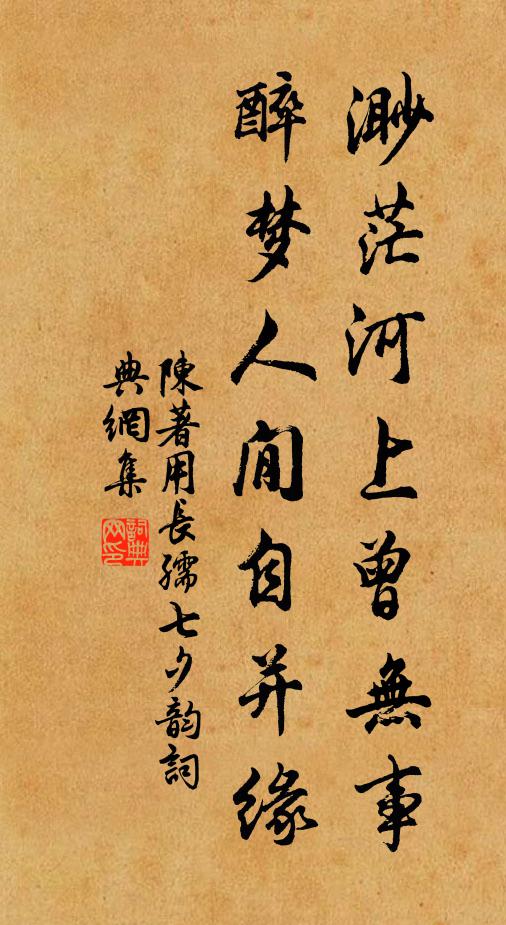 渺茫河上曾無事
醉梦人间自并缘
陳著用長孺七夕韵詞
典網集
詞典網印